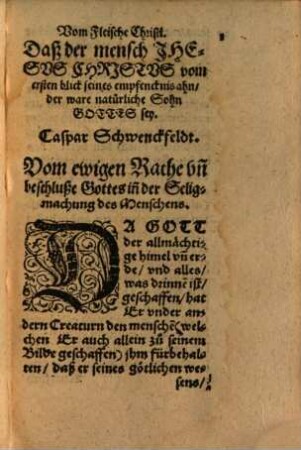 Vom Fleische Christi.
Daß der mensch JHE-
SVS CHRISTVS vom
ersten blick seines empfencknis ahn/
der ware natürliche Sohn
GOTTES sey.
Caspar Schwenckfeldt.
Vom ewigen Rathe vn̄
beschluße Gottes in̄ der Selig-
machung des Menschens.
DA GOTT
der allmächti-
ge himel vn̄ er-
de/ vnd alles/
was drinnē ist/
geschaffen/ hat
Er vnder an-
dern Creaturn den menschē (wel-
chen Er auch allein zů seinem
Bilde geschaffen) jhm fürbehal-
ten/ daß er seines götlichen we-
sens/